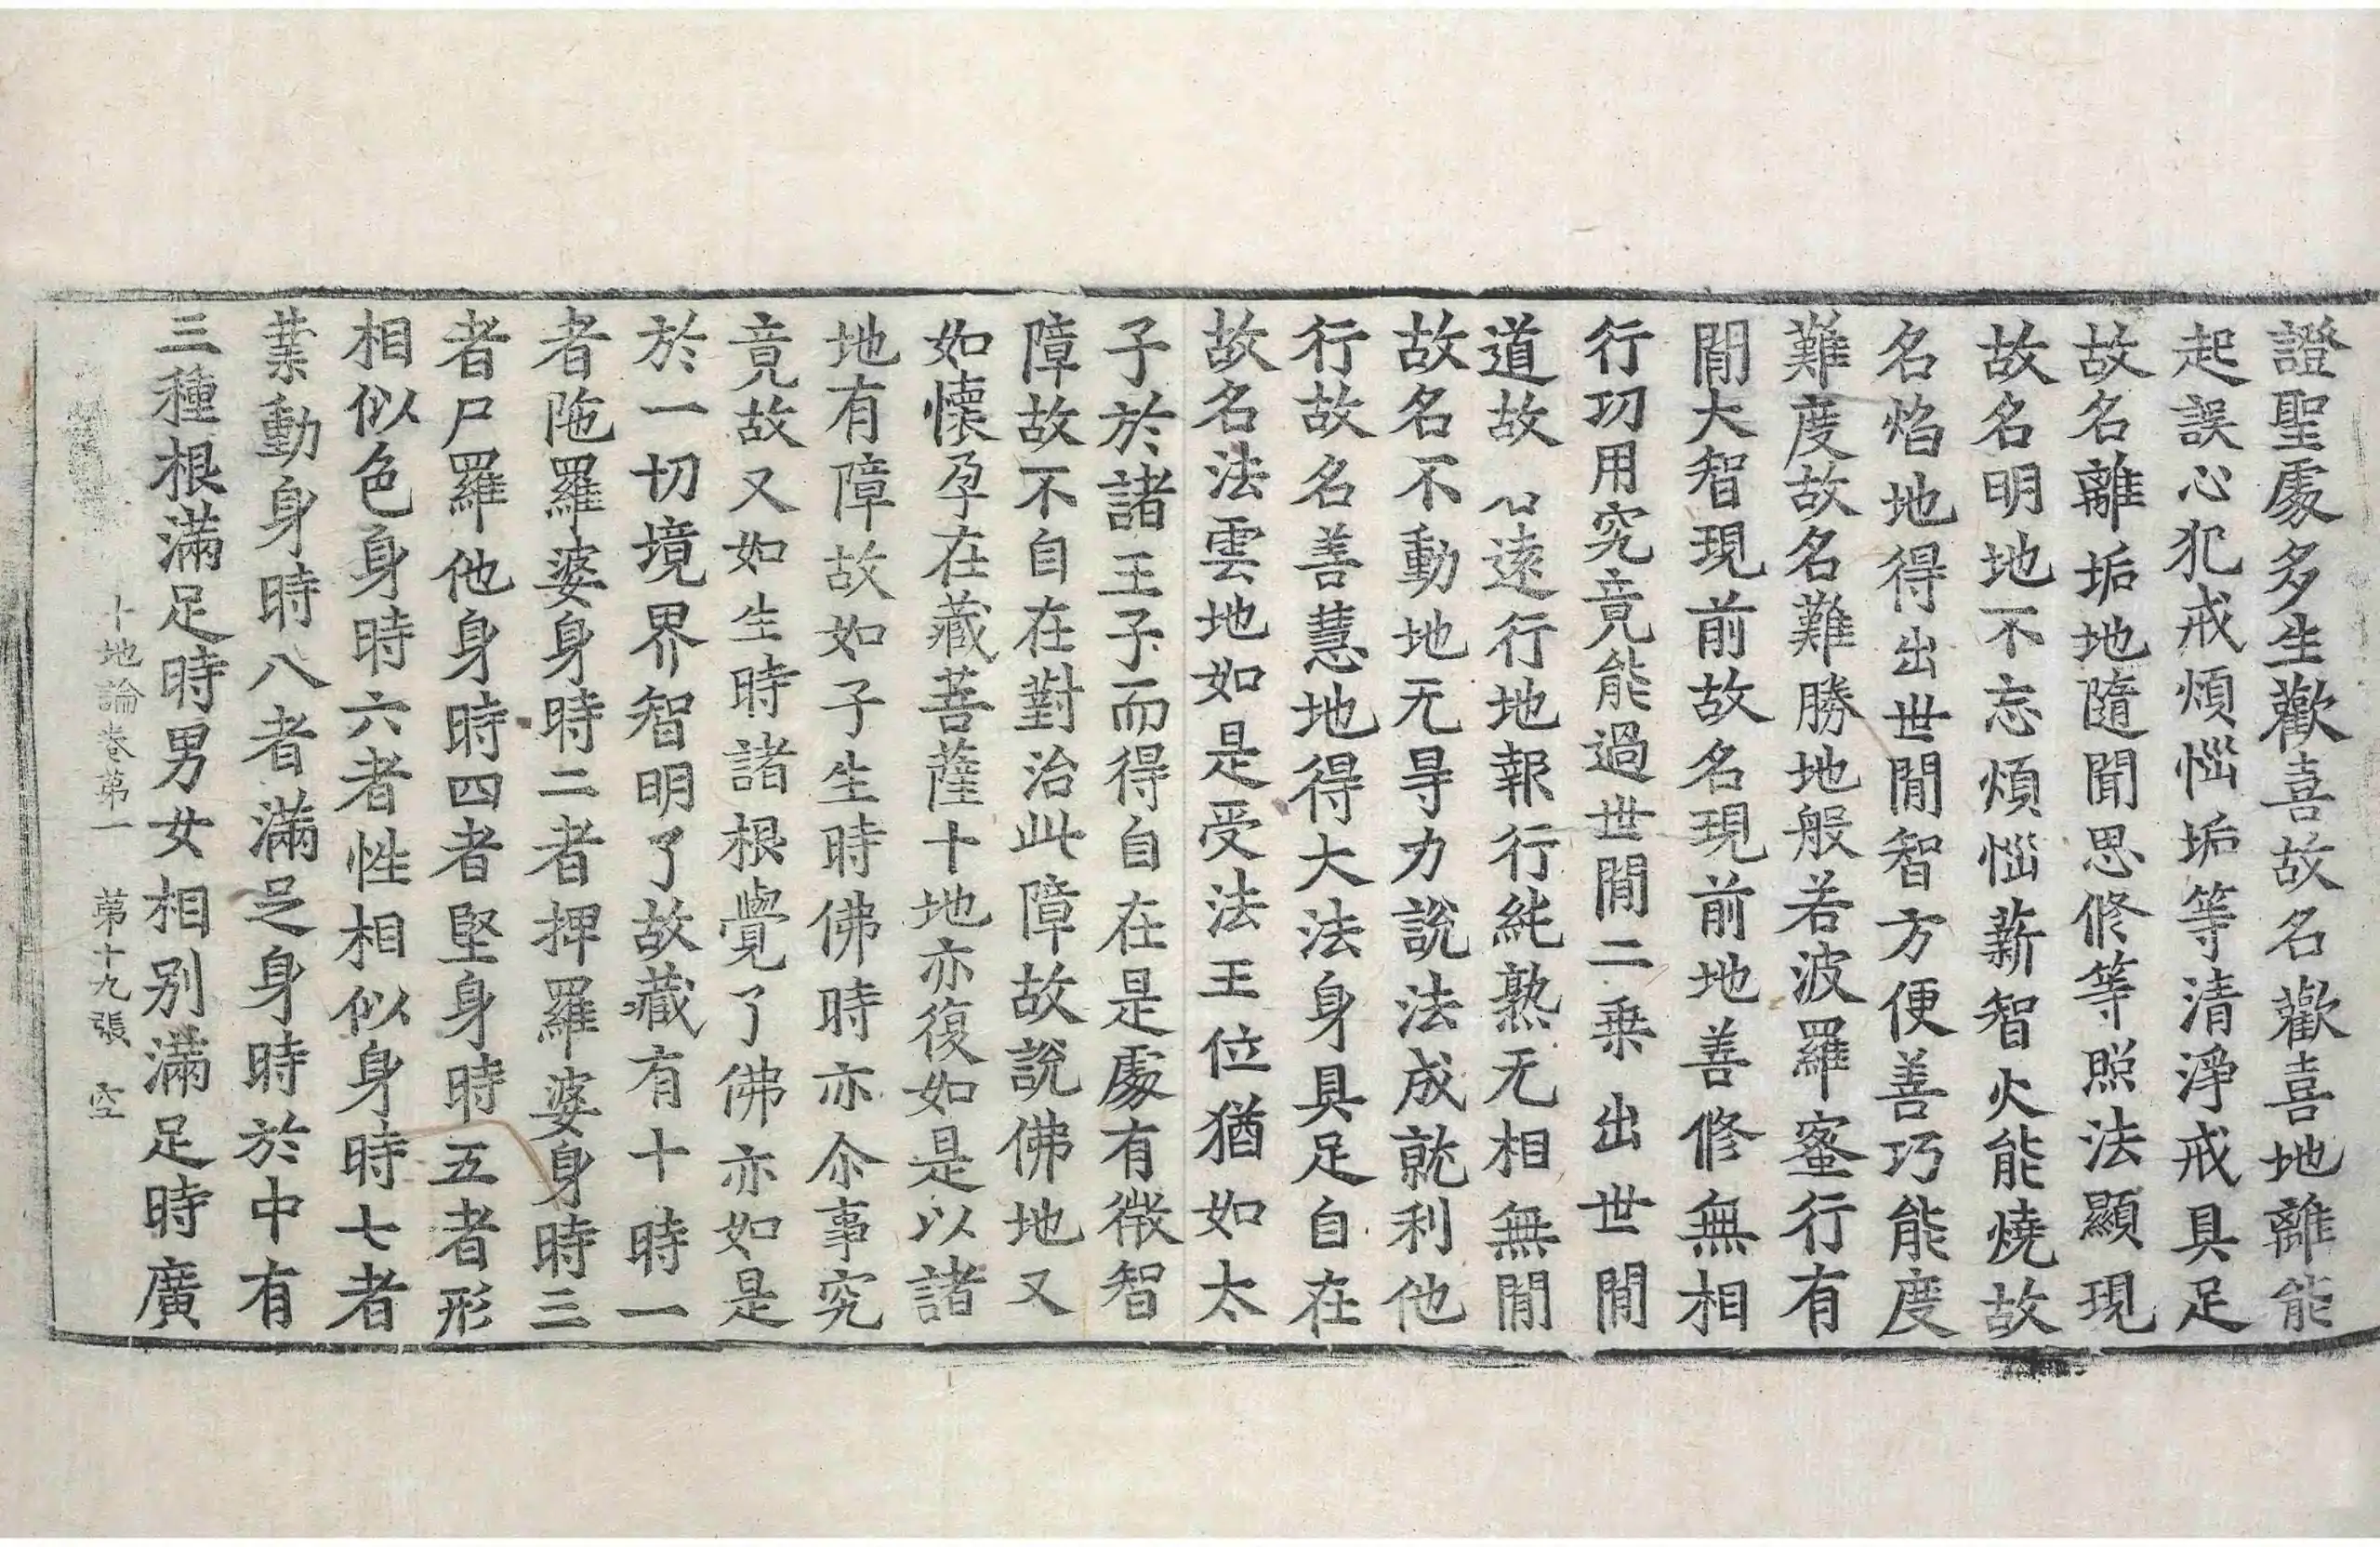 證聖處多生歡喜故名歡喜地離能
起誤心犯戒煩惱垢等清淨戒具足
故名離垢地隨聞思修等照法顯現
故名明地不忘煩惱薪智火能燒故
名焰地得出世間智方便善巧能度
難度故名難勝地般若波羅蜜行有
間大智現前故名現前地善修無相
行功用究竟能過世間二乗出世間
道故 遠行地報行純熟无相無間
故名不動地无㝵力說法成就利他
行故名善慧地得大法身具足自在
故名法雲地如是受法王位猶如太
子於諸王子而得自在是處有微智
障故不自在對治此障故說佛地又
如懷孕在藏菩薩十地亦復如是以諸
地有障故如子生時佛時亦尒事究
竟故又如生時諸根覺了佛亦如是
於一切境界智明了故藏有十時一
者陁羅婆身時二者捭羅婆身時三
者尸羅他身時四者堅身時五者形
相似色身時六者性相似身時七者
業動身時八者滿足身時於中有
三種根滿足時男女相别滿足時廣
十地論卷第一 苐十九張 空